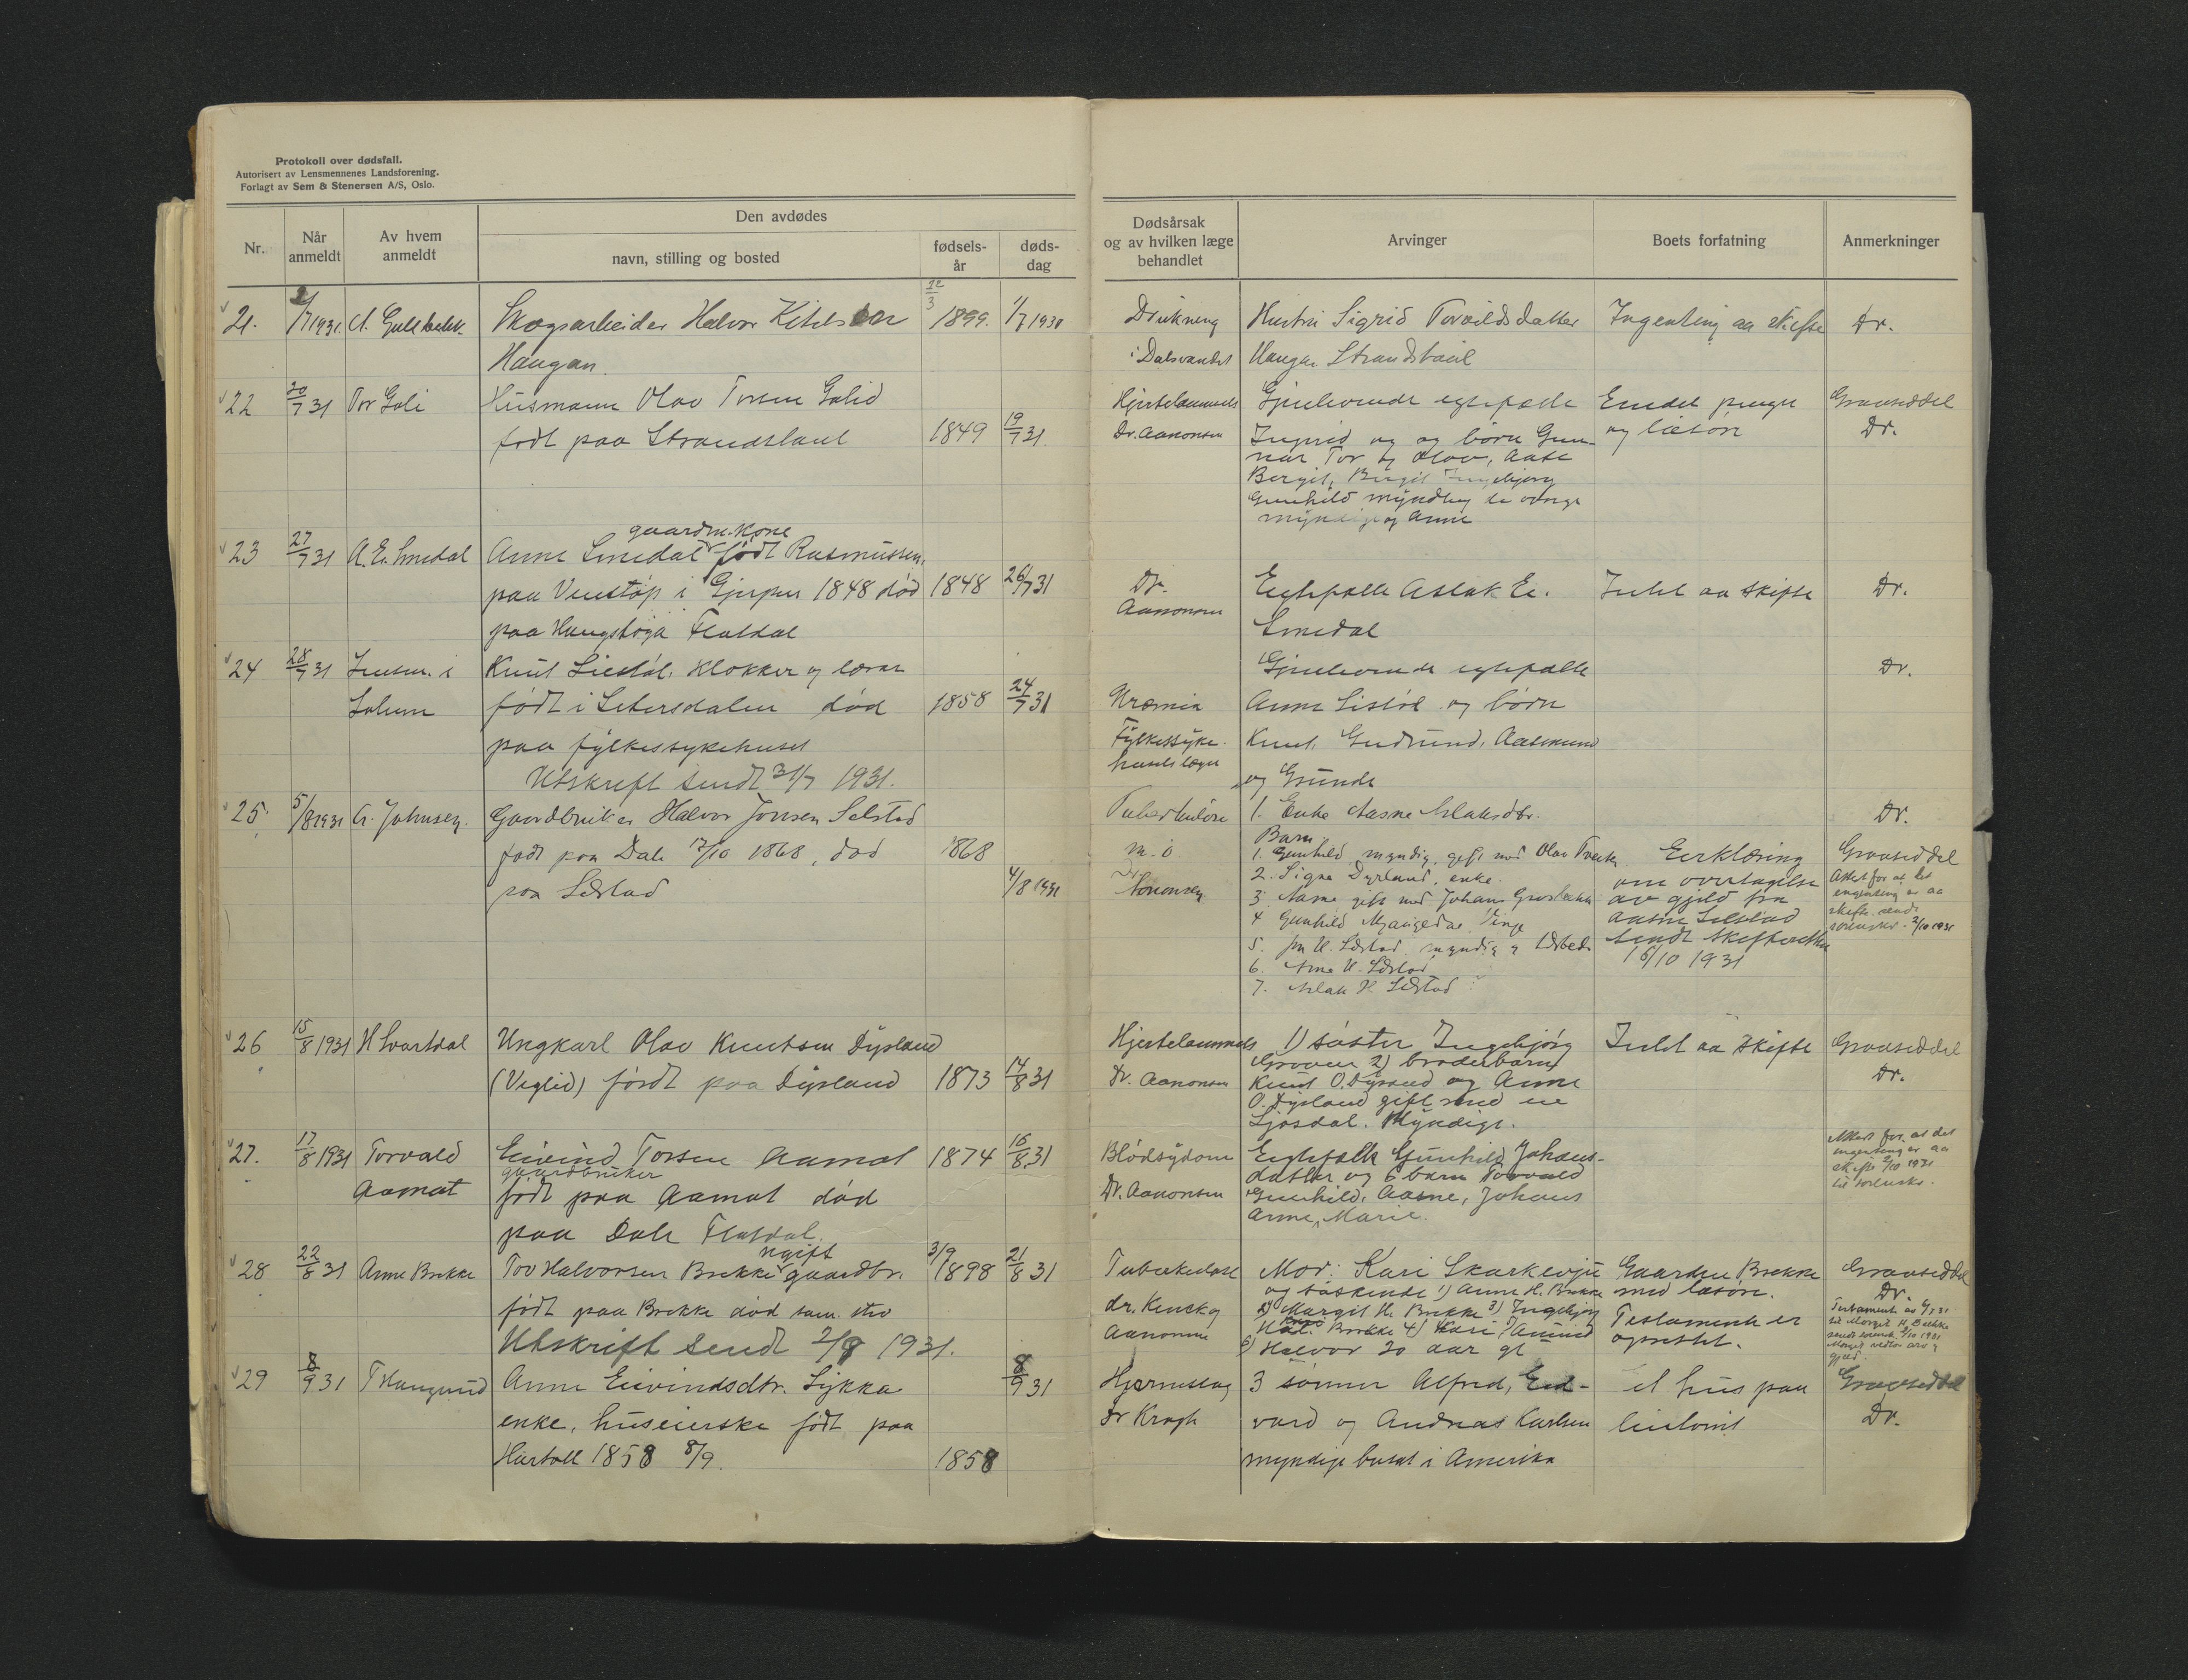 Protokoll over dødsfall.
Autorisert av Lensmennenes Landsforening.
Forlagt av Sem & Stenersen A/S, Oslo.
Nr.
Når anmeldt
Av hvem anmeldt
Den avdødes
navn, stilling og bosted
fødsels-år
døds-dag
Dødsårsak og av hvilken læge behandlet
Arvinger
Boets forfatning
Anmerkninger
21. 2/7 1931. Skogsarbeider Halvor Kitilsen 12/3 1899. 1/7 1931 Drukning Hustru Sigrid Torvildsdatter Ingenting aa skifte Dr.
Haugan. i Dalsvandet Haugan Strandstaul
22 20/7 31 Tor Gali Husmann Olav Torsen Galid Hjertelammels Gjenlevende egtefælle Endel penger Gravseddel
født paa Strandstaul 1849 19/7 31 Dr. Aanonsen Ingrid og børn Gun- og løsøre Dr.
nar Tor og Olav, Aase
Bergit, Birgit Ingebjørg
Gunhild myndig de øvrige
myndige og Anne
gaardm. kone
23 27/7 31 A. E. Smedal Anne Smedal født Rasmussen.
paa Venstøp i Gjerpen 1848 død 1848 26/7 31 Dr. Egtefælle Aslak Ei. Intet aa skifte Dr.
paa Haugshøga Flatdal Aanonsen Smedal
24 28/7 31 Lensm. i Knut Liestøl, Klokker og lærer Gjenlevende egtefælle Dr.
Solum født i Setersdalen død 1858 24/7 31 Uræmia Anne Listøl og børn
paa fylkessykehuset Fylkessyke- Knut, Gudrund, Aasmund
Utskrift sendt 31/7 1931. husets læger og Gunde
25. 5/8 1931 G. Johnsen. Gaardbruker Halvor Jonsen Selstad Tuberkuløse 1. Enke Aasne Aslaksdtr. Dr.
født paa Dale 17/10 1868, død 1868 Barn
paa Selstad 4/8 1931 Aanonsen 1. Gunhild myndig, gift med Olav Tveiten Erklæring Gravseddel
2. Signe Dyrland, enke. om overtagelse Attest for at det
3. Aasne gift med Johans av gjeld fra engenting er aa
4 Gunhild Vinje Aasne Selstad skifte sendt
5. Jon H. Selstad, myndig sendt skifteretten sorenskr. 2/10 1931
6. Arne H. Selstad 16/10 1931
7. Aslak H. Selstad
26 15/8 1931 H Svartdal Ungkarl Olav Knutsen Dyrland Hjertelammels 1) søster Ingebjørg Intet aa skifte Gravseddel
(Veglid) født paa Dyrland 1873 14/8 31 Dr. Aanonsen Groven 2) broderbarn Dr.
Knut O. Dyrland og Anne
O. Dyrland gift med en
Ljosdal. Myndige.
27. 17/8 1931 Torvald Eivind Torsen Aamot 1874 16/8 31 Blodsygdom Egtefælle Gunhild Johans- Attest for at det
Aamot gaardbruker datter og 6 barn Torvald ingenting er aa
født paa Aamot død Dr. Aanonsen Gunhild, Aasne, Johans skifte 2/10 1931
paa Dale Flatdal. Anne, Marie. til sorenskr.
28 22/8 31 Anne Brekke Tov Halvorsen Brekke ugift gaardbr. 3/9 1898 21/8 31 Tuberkulose Mor: Kari Skarkevju Gaarden Brekke Gravseddel
født paa Brekke død sam. sted dr. Kenck og og søskende 1) Anne H. Brekke med løsøre. Dr.
Utskrift sendt 2/9 1931. Aanonsen 2) Margit H. Brekke 3) Ingebjørg Testamente er Testament av 4/7 31
Hal. Brekke 4) Kari 5) Amund oprettet. til Margit H. Brekke
6) Halvor 20 aar gl sendt sorensk. 2/10 1931
Margit vedtar arv og gjeld.
29 8/9 31 T Haugrund Anne Eivindsdtr. Lykka 8/9 31 Hjerneslag 3 sønner Alfred, Ed- et hus paa Gravseddel
enke, huseierske født paa Dr Krogh vard og Andreas Karlsen Dr.
1858 8/9. 1858 myndige bosat i Amerika